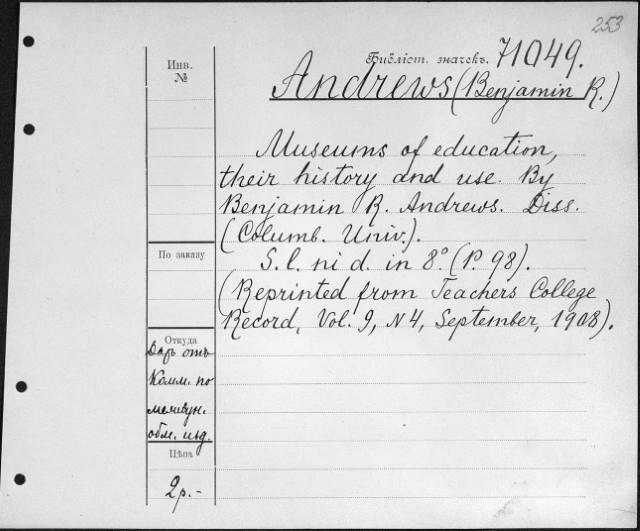 253
Библіот. значекъ. 71049.
Инв.
№
Andrews (Benjamin R.)
Museums of education,
their history and use. By
Benjamin R. Andrews. Diss.
(Columb. Univ.).
По заказу
S. l. ni d. in 8°. (P. 98).
(Reprinted from Teachers College
Record, Vol. 9, N 4, September, 1908).
Откуда
Даръ отъ
Комм. по
междун.
обм. изд.
Цѣна
2р.-